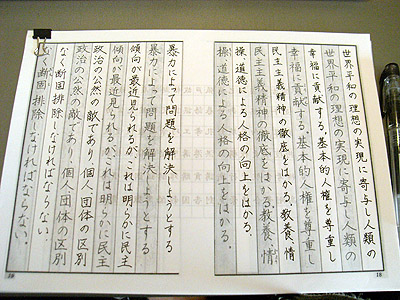 世界平和の理想の実現に寄与し人類の
世界平和の理想の実現に寄与し人類の
幸福に貢献する。基本的人権を尊重し
幸福に貢献する。基本的人権を尊重し
民主主義精神の徹底をはかる。教養、情
民主主義精神の徹底をはかる。教養、情
操、道徳による人格の向上をはかる。
操、道徳による人格の向上をはかる。
18
暴力によって問題を解決しようとする
暴力によって問題を解決しようとする
傾向が最近見られるが、これは明らかに民主
傾向が最近見られるが、これは明らかに民主
政治の公然の敵であり、個人、団体の区別
政治の公然の敵であり、個人、団体の区別
なく断固排除しなければならない。
なく断固排除しなければならない。